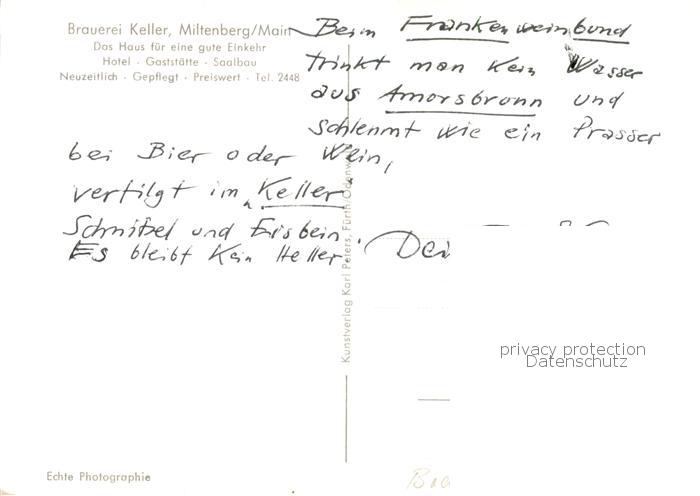 Brauerei Keller, Miltenberg/Main
Das Haus für eine gute Einkehr
Hotel · Gaststätte · Saalbau
Neuzeitlich · Gepflegt · Preiswert · Tel. 2448
Beim Frankenweinbund
trinkt man kein Wasser
aus Amorsbronn und
schlemmt wie ein Prasser
bei Bier oder Wein,
vertilgt im "Keller"
Schnitzel und Eisbein.
Es bleibt kein Heller!
Dei
Kunstverlag Karl Peters, Fürth/Odenw.
privacy protection
Datenschutz
Echte Photographie